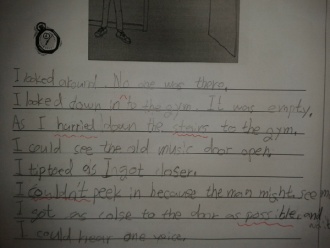 9
I looked around. No one was there.
I looked down in to the gym. It was empty.
As I hurried down the stairs to the gym.
I could see the old music door open.
I tiptoed as I got closer.
I couldn't peek in because the man might see me
I got as calse to the door as possible, and
I could hear one voice.